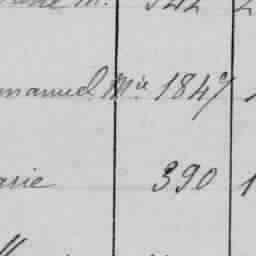 342
manuel Mie 1847
arie 390 1